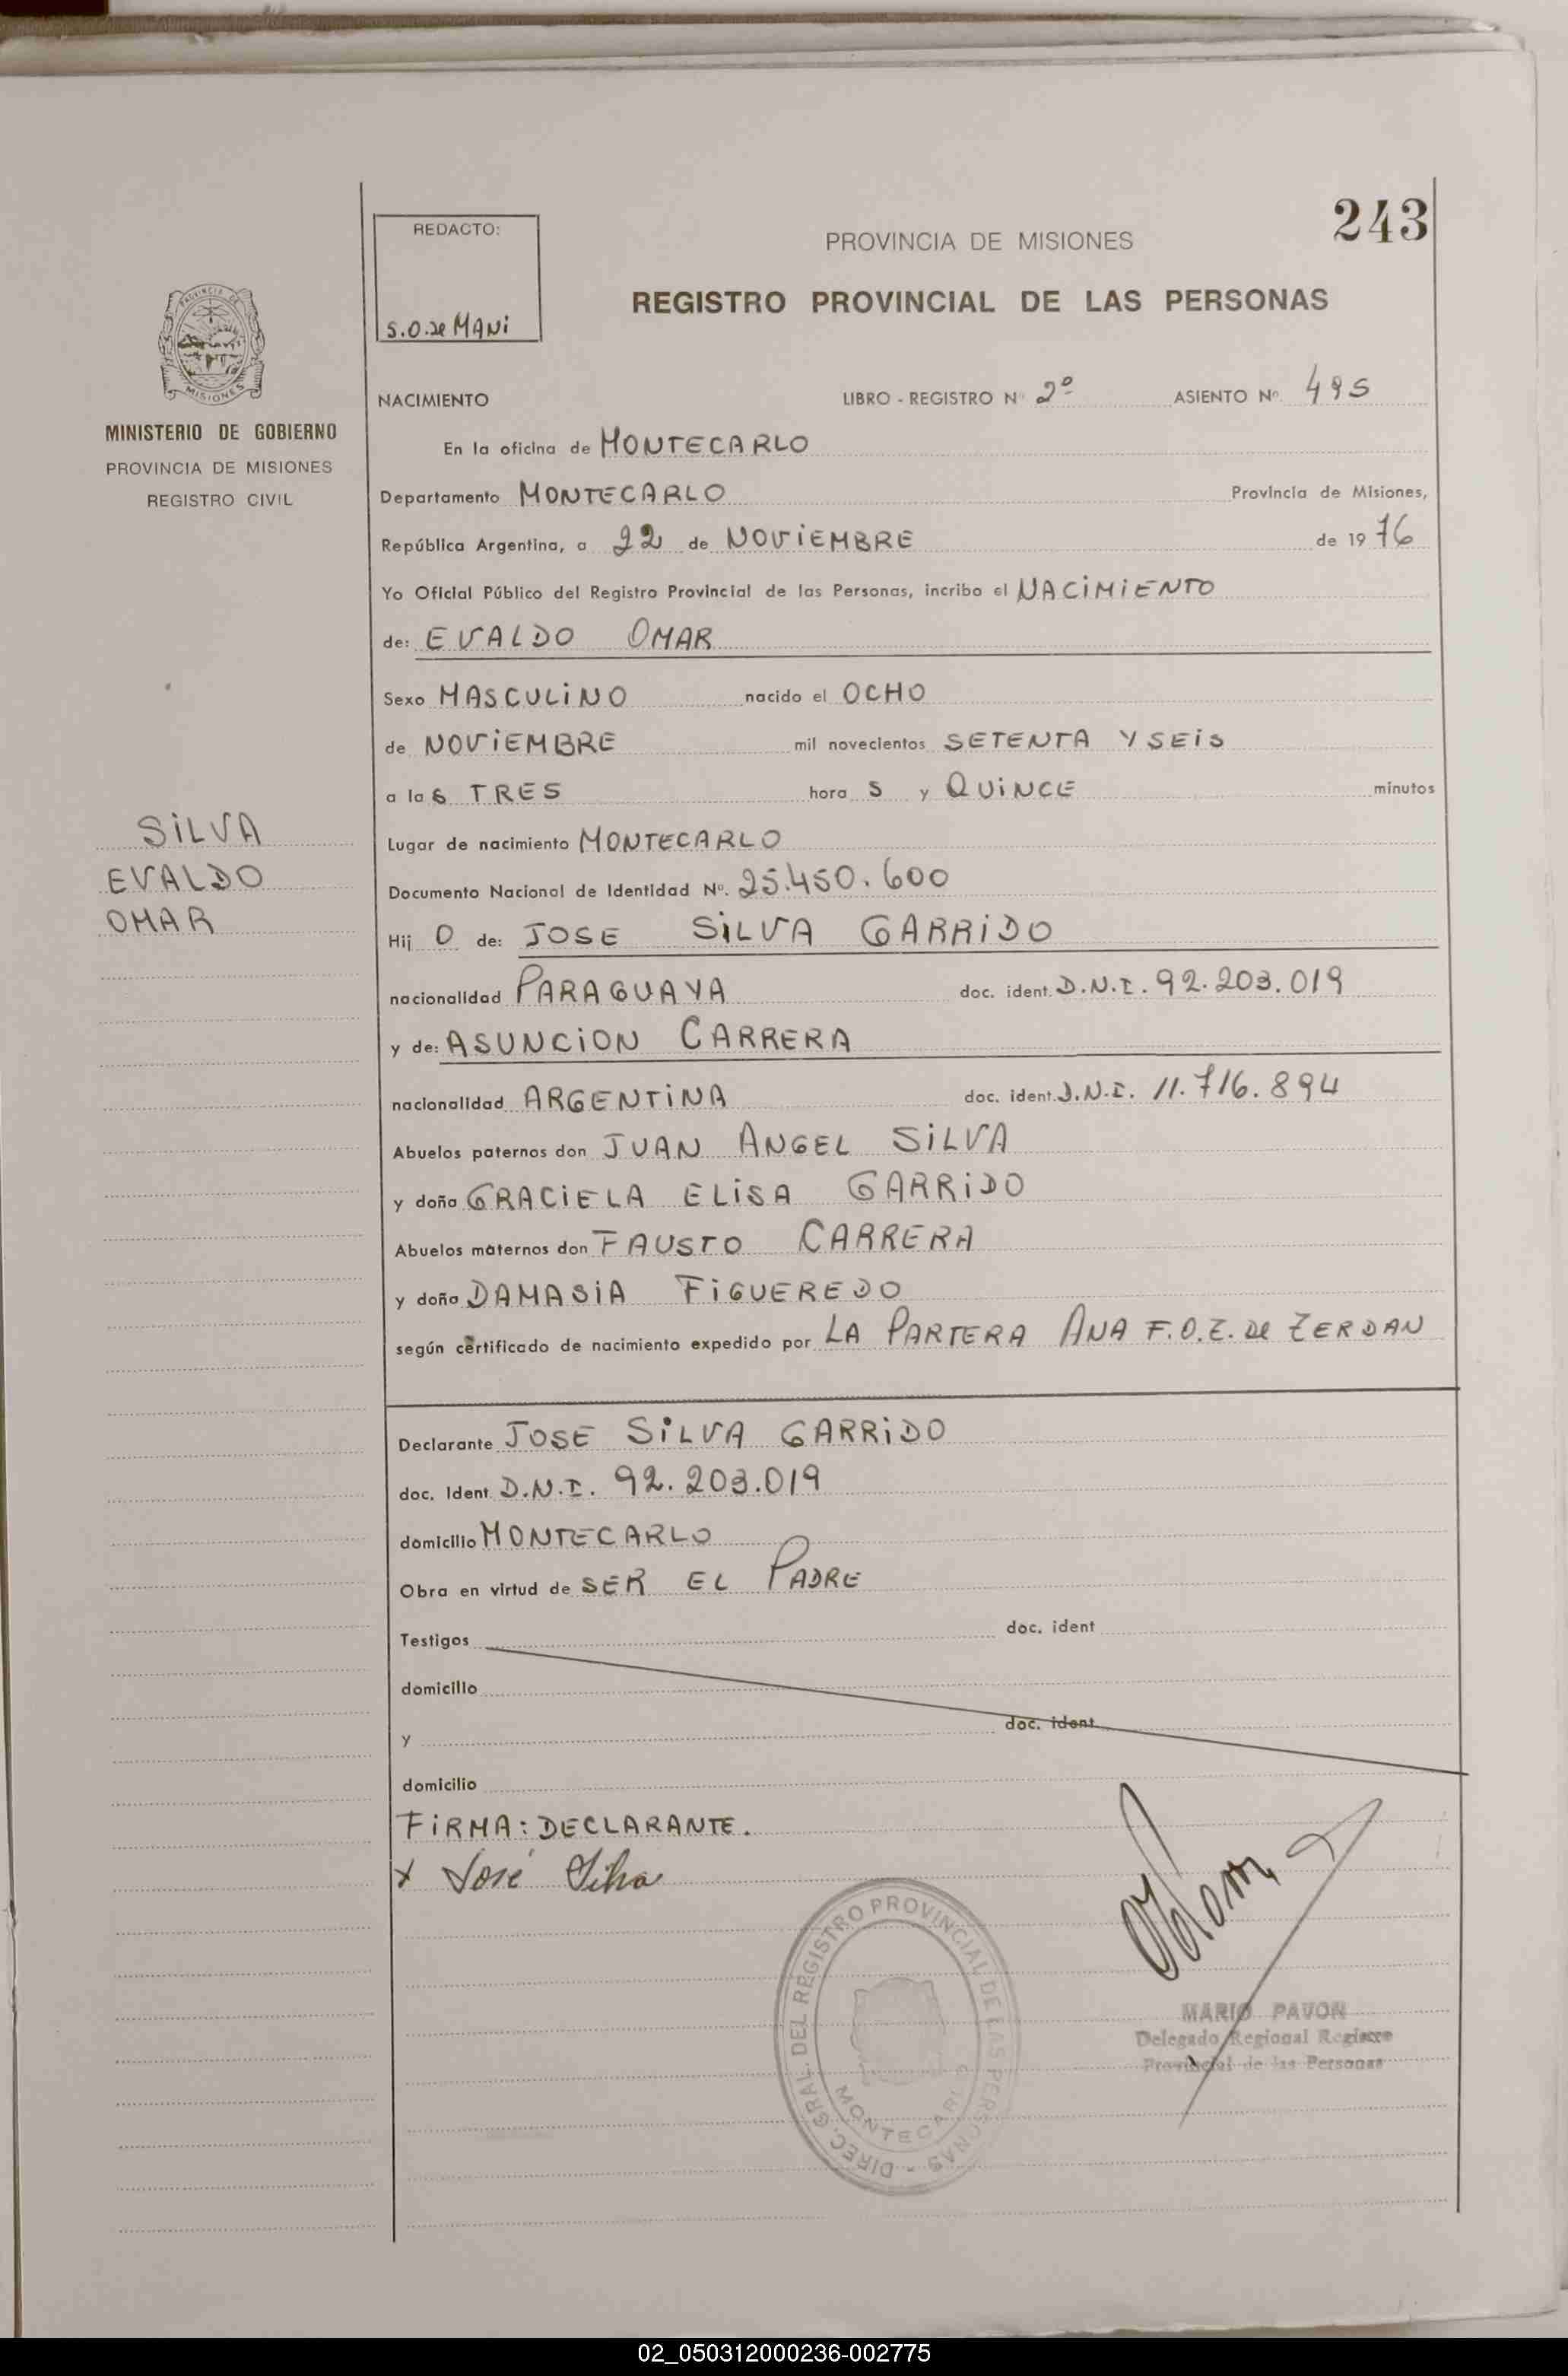 243
REDACTO:
S.O. de MANI
PROVINCIA DE MISIONES
REGISTRO PROVINCIAL DE LAS PERSONAS
PROVINCIA DE
MISIONES
MINISTERIO DE GOBIERNO
PROVINCIA DE MISIONES
REGISTRO CIVIL
NACIMIENTO LIBRO - REGISTRO Nº 2º ASIENTO Nº. 495
En la oficina de MONTECARLO
Departamento MONTECARLO Provincia de Misiones,
República Argentina, a 22 de NOVIEMBRE de 1976
Yo Oficial Público del Registro Provincial de las Personas, incribo el NACIMIENTO
de: EVALDO OMAR
Sexo MASCULINO nacido el OCHO
de NOVIEMBRE mil novecientos SETENTA Y SEIS
a las TRES horas y QUINCE minutos
SILVA
EVALDO
OMAR
Lugar de nacimiento MONTECARLO
Documento Nacional de Identidad Nº. 25.450.600
Hijo de: JOSE SILVA GARRIDO
nacionalidad PARAGUAYA doc. ident. D.N.I. 92.203.019
y de: ASUNCION CARRERA
nacionalidad ARGENTINA doc. ident. D.N.I. 11.716.894
Abuelos paternos don JUAN ANGEL SILVA
y doña GRACIELA ELISA GARRIDO
Abuelos maternos don FAUSTO CARRERA
y doña DAMASIA FIGUEREDO
según certificado de nacimiento expedido por LA PARTERA ANA F.O.Z. de ZERDAN
Declarante JOSE SILVA GARRIDO
doc. Ident. D.N.I. 92.203.019
domicilio MONTECARLO
Obra en virtud de SER EL PADRE
Testigos doc. ident
domicilio
y doc. ident
domicilio
FIRMA: DECLARANTE.
x José Silva
DIREC. GRAL. DEL REGISTRO PROVINCIAL DE LAS PERSONAS -
MONTECARLO
MARIO PAVON
Delegado Regional Registro
Provincial de las Personas
02_050312000236-002775